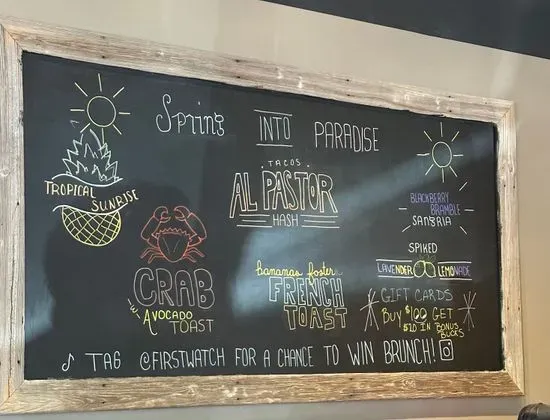 Spring INTO PARADISE
TROPICAL
SUNRISE
TACOS
AL PASTOR
HASH
BLACKBERRY
BRAMBLE
SANGRIA
SPIKED
LAVENDER LEMONADE
CRAB
-W-
AVOCADO
TOAST
bananas foster
FRENCH
TOAST
GIFT CARDS
BUY $100 GET
$20 IN BONUS
BUCKS
TAG @FIRSTWATCH FOR A CHANCE TO WIN BRUNCH!